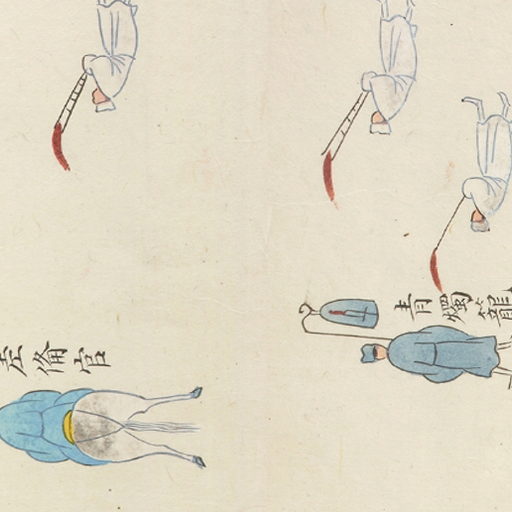 青燭籠
左備官